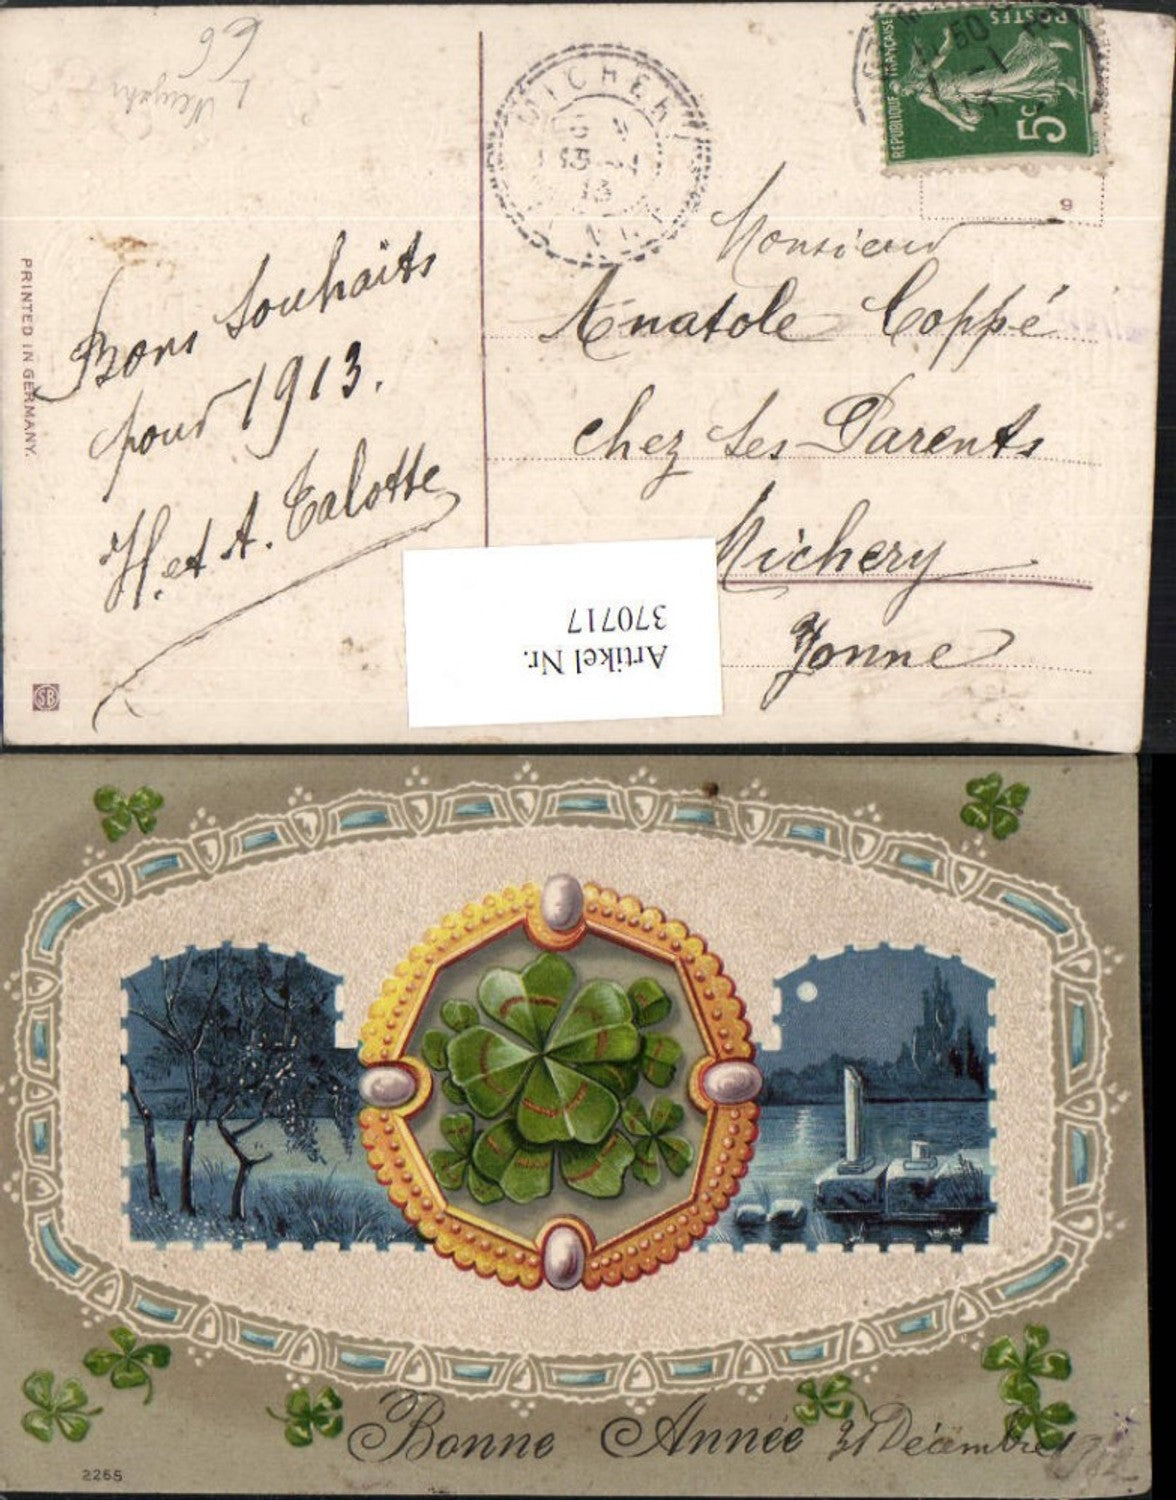 Neujahr
L
66
REPUBLIQUE FRANÇAISE
POSTES
5c
MICHERY
YONNE
9
Bons Souhaits
pour 1913.
H. et A. Talotte
PRINTED IN GERMANY.
SB
Monsieur
Anatole Coppé
chez Ses Parents
Michery
Yonne
Artikel Nr.
370717
Bonne Année
31 Décembre 1912
2265